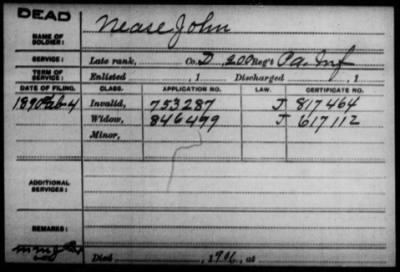 DEAD
NAME OF SOLDIER: Nease John
SERVICE: Late rank, Co. D, 200 Reg't Pa. Inf
TERM OF SERVICE: Enlisted , 1 Discharged , 1
DATE OF FILING. CLASS. APPLICATION NO. LAW. CERTIFICATE NO.
1890 Feb-4 Invalid, 753287 J 817464
Widow, 846499 J 617112
Minor,
ADDITIONAL SERVICES:
REMARKS:
Died , 1906, at